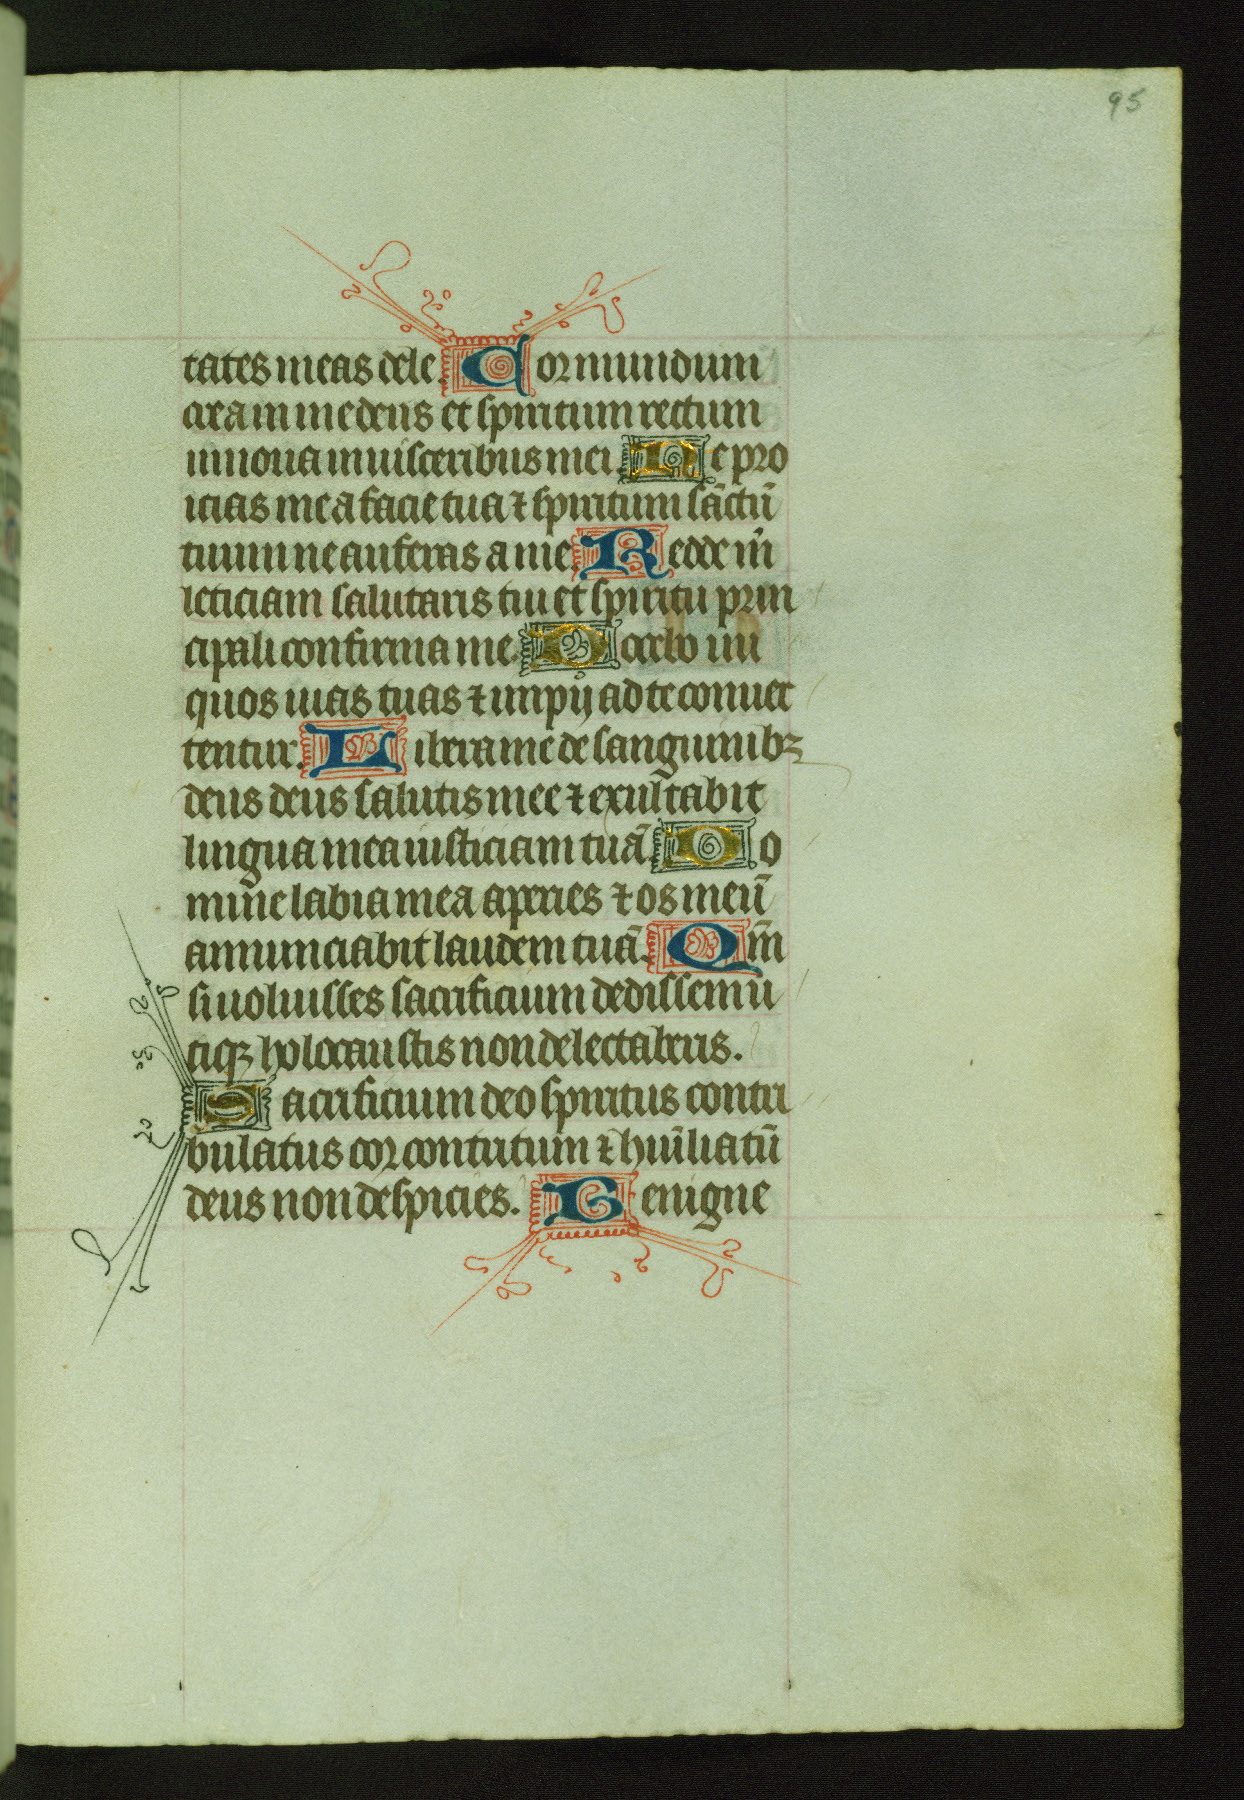 95
tates meas dele. Cor mundum
crea in me deus et spiritum rectum
innoua in uisceribus mei. Ne pro
icias me a facie tua ⁊ spiritum sāctū
tuum ne auferas a me. Redde m̄
leticiam salutaris tui et spiritu prin
cipali confirma me. Docebo ini
quos uias tuas ⁊ impij ad te conuer
tentur. Libera me de sanguinibꝫ
deus deus salutis mee ⁊ exultabit
lingua mea iusticiam tuā. Do
mine labia mea aperies ⁊ os meū
annunciabit laudem tuā. Qm̄
si uoluisses sacrificium dedissem u
tiqꝫ holocaustis non delectaberis.
Sacrificium deo spiritus contri
bulatus cor contritum ⁊ hūiliatū
deus non despicies. Benigne